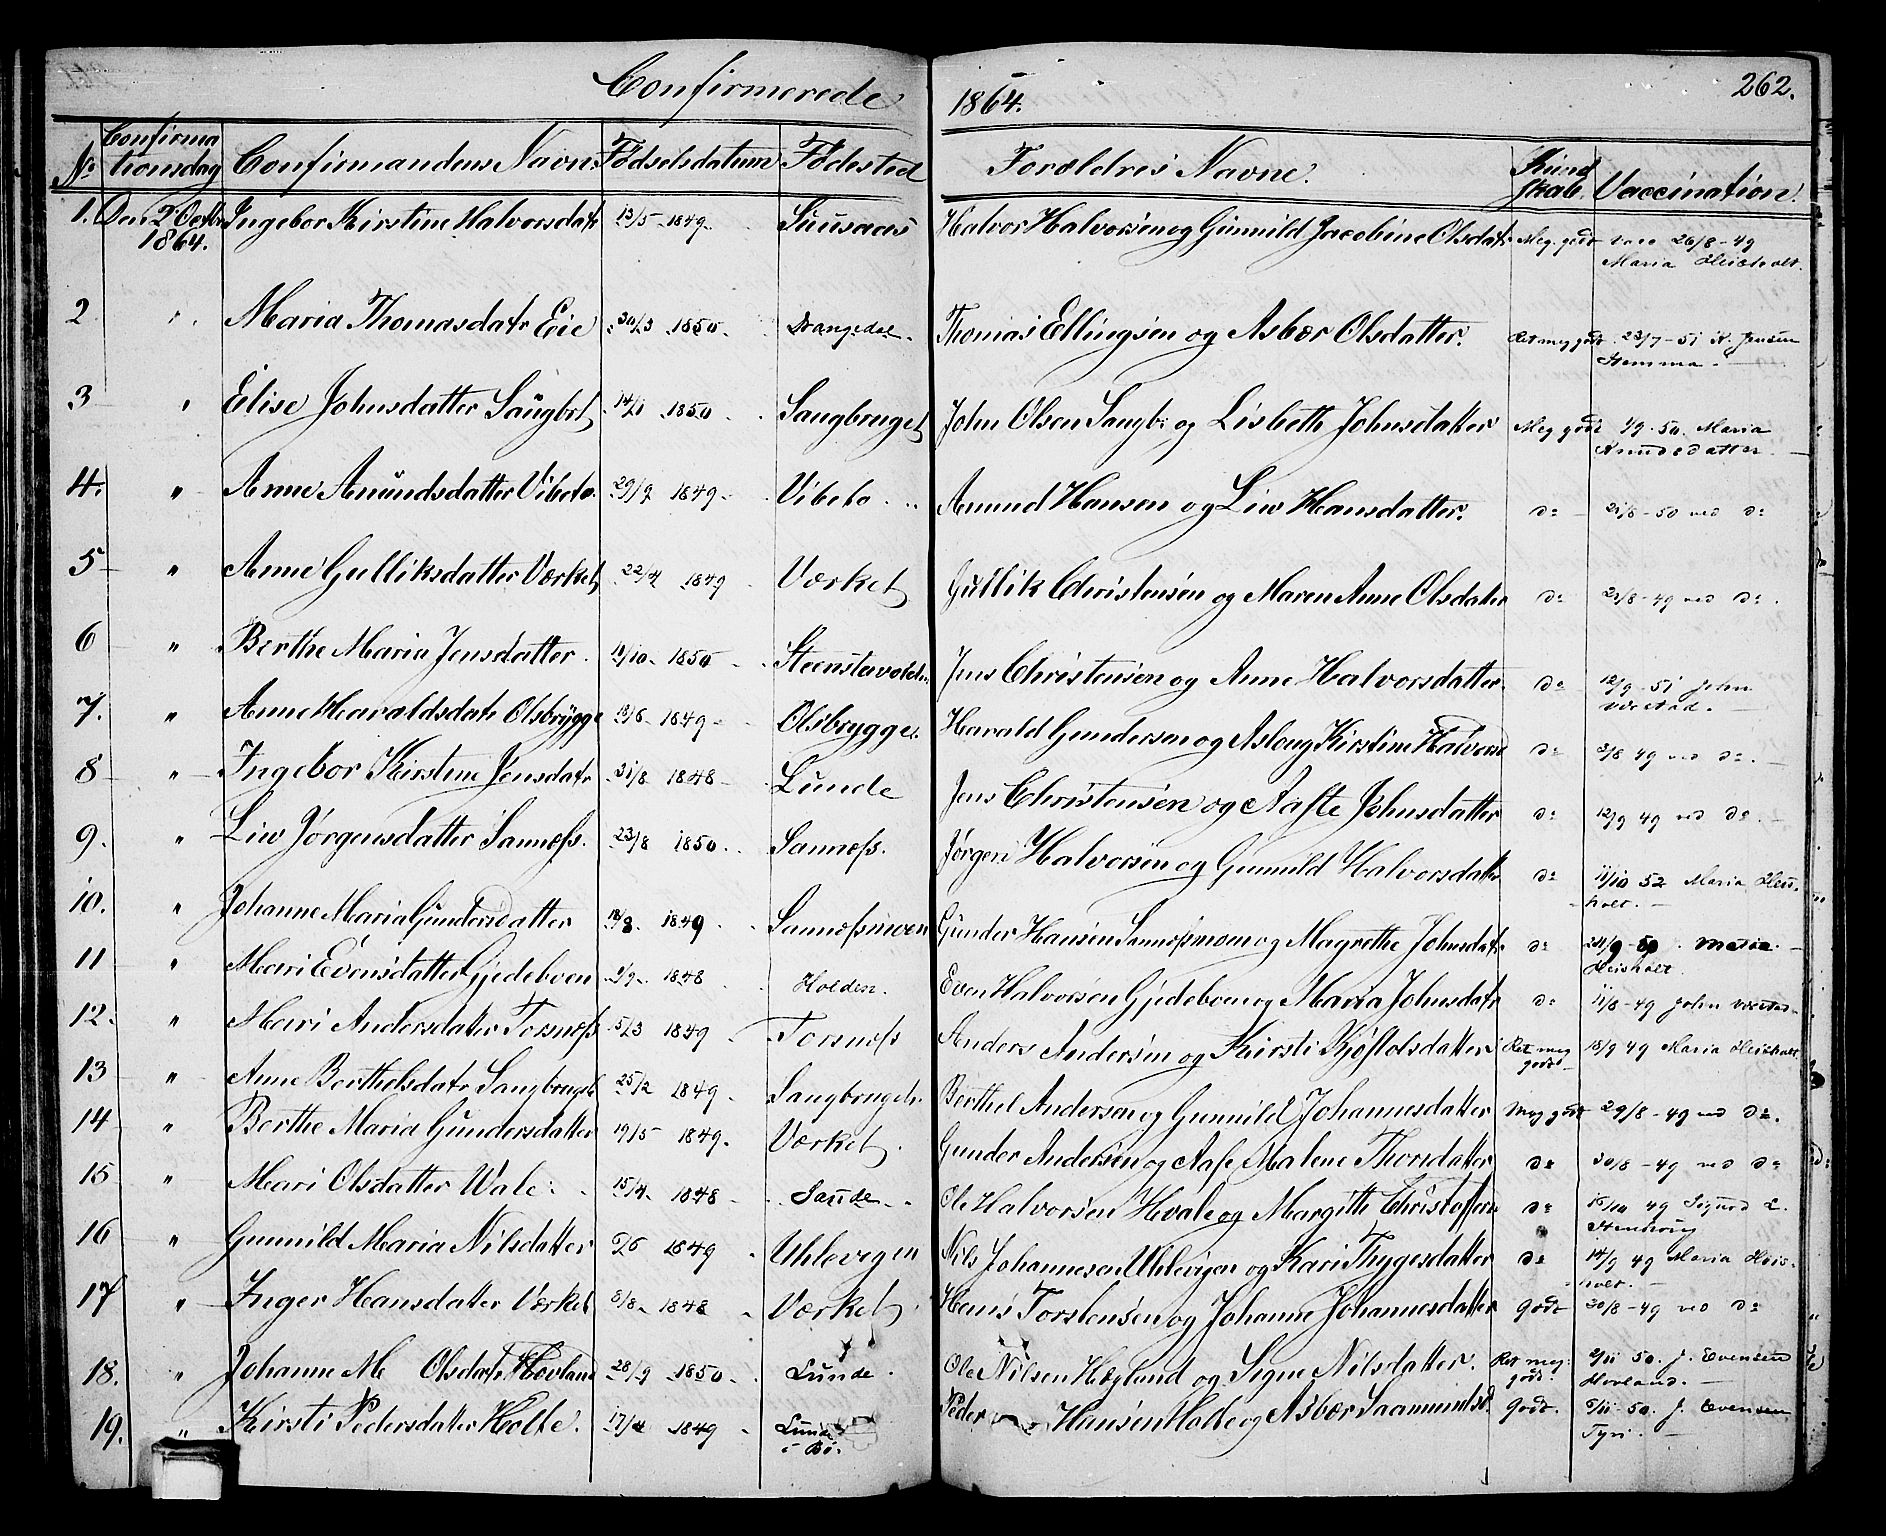 Confirmerede 1864. 262.
No Confirmationsdag Confirmandens Navn. Fødselsdatum Fødested Forældres Navne. Kundskab. Vaccination.
1. Den 2 Octbr 1864. Ingebor Kirstine Halvorsdatr 13/5 1849 Halvor Halvorsen og Gunnild Jacobine Olsdatr Meg. godt 26/8-49 Maria
2 " Maria Thomasdatr Eie 30/3 1850 Drangedal Thomas Ellingsen og Asbær Olsdatter. Ret meg godt 23/7-51 Jensen Hemma.
3 " Elise Johnsdatter Saugbrt 14/1 1850 Saugbruget John Olsen Saugb: og Lisbeth Johnsdatter Meg godt 50. Maria
4. " Anne Amundsdatter Vibeto. 29/9 1849 Vibeto Amund Hansen og Liw Hansdatter. do 21/8-50 ved do
5 " Anne Gulliksdatter Værket 22/4 1849 Værket Gullik Christensen og Maren Anne Olsdater do 21/8-49 ved do.
6 " Berthe Maria Jensdatter. 1850 Jens Christensen og Anne Halvorsdatter. do 12/9-51 John
7. " Anne Haraldsdatr Olsbrygge 1849 Olsbrygge. Harald Gundersen og Aslaug Kirstine do 49 ved do.
8 " Ingebor Kirstine Jensdatr 31/8 1848 Lunde Jens Christensen og Aafte Johnsdatter do 12/9 49 ved do.
9. " Liw Jørgensdatter Sanness. 23/8 1850 Sanness. Jørgen Halvorsen og Gunnild Halvorsdattr do 11/10 52 Maria
10. " Johanne Maria Gundersdatter 18/8 1849 Gunder Hansen og Magrethe Johnsdatr do
11 " Mari Evensdatter Gjedeboen 1848 Holden. Even Halvorsen Gjedeboen og Maria Johnsdatr do 11/8-49 John
12. " Mari Andersdatter Torsness 5/3 1849 Torsness Anders Andersen og Kirsti Kjøstolsdatter Ret meg godt 18/9 49 Maria
13 " Anne Berthelsdatr Saugbruget 25/2 1849 Saugbruget. Berthel Andersen og Gunnild Johannesdatter Meg godt 29/8-49 ved do.
14 " Berthe Maria Gundersdatter 19/5 1849. Værket. Gunder Andersen og Aase Malene Thorsdatter do 30/8-49 ved do
15 " Mari Olsdatter Wale 15/4 1848 Saude Ole Halvorsen Hvale og Margith do 49
16 " Gunnild Maria Nilsdatter 1849 Uhlevigen Nils Johannesen Uhlevigen og Kari Thygesdatter do 14/9 49 Maria
17 " Inger Hansdatter Værket 8/8 1848 Værket. Hans Torstensen og Johanne Johannesdatter Godt 20/8-49 ved do
18. " Johanne M Olsdatr Hovland 28/9 1850 Lunde. Ole Nilsen og Signe Nilsdatter. Ret meg: godt. 2/11 50. J. Evensen Hovland.
19. " Kirsti Pedersdatter Holte. 17/4 1849 Lunde i Bø. Peder Hansen Holte og Asbær Godt. 5/11-50. J. Evensen